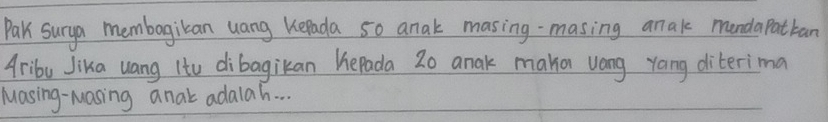 Pak Surya membagikan uang kepada 50 anak masing-masing anak mendapatkan
4ribu Jika uang itu dibagikan kepada 20 anak maka uang yang diterima
Masing-Masing anak adalah...